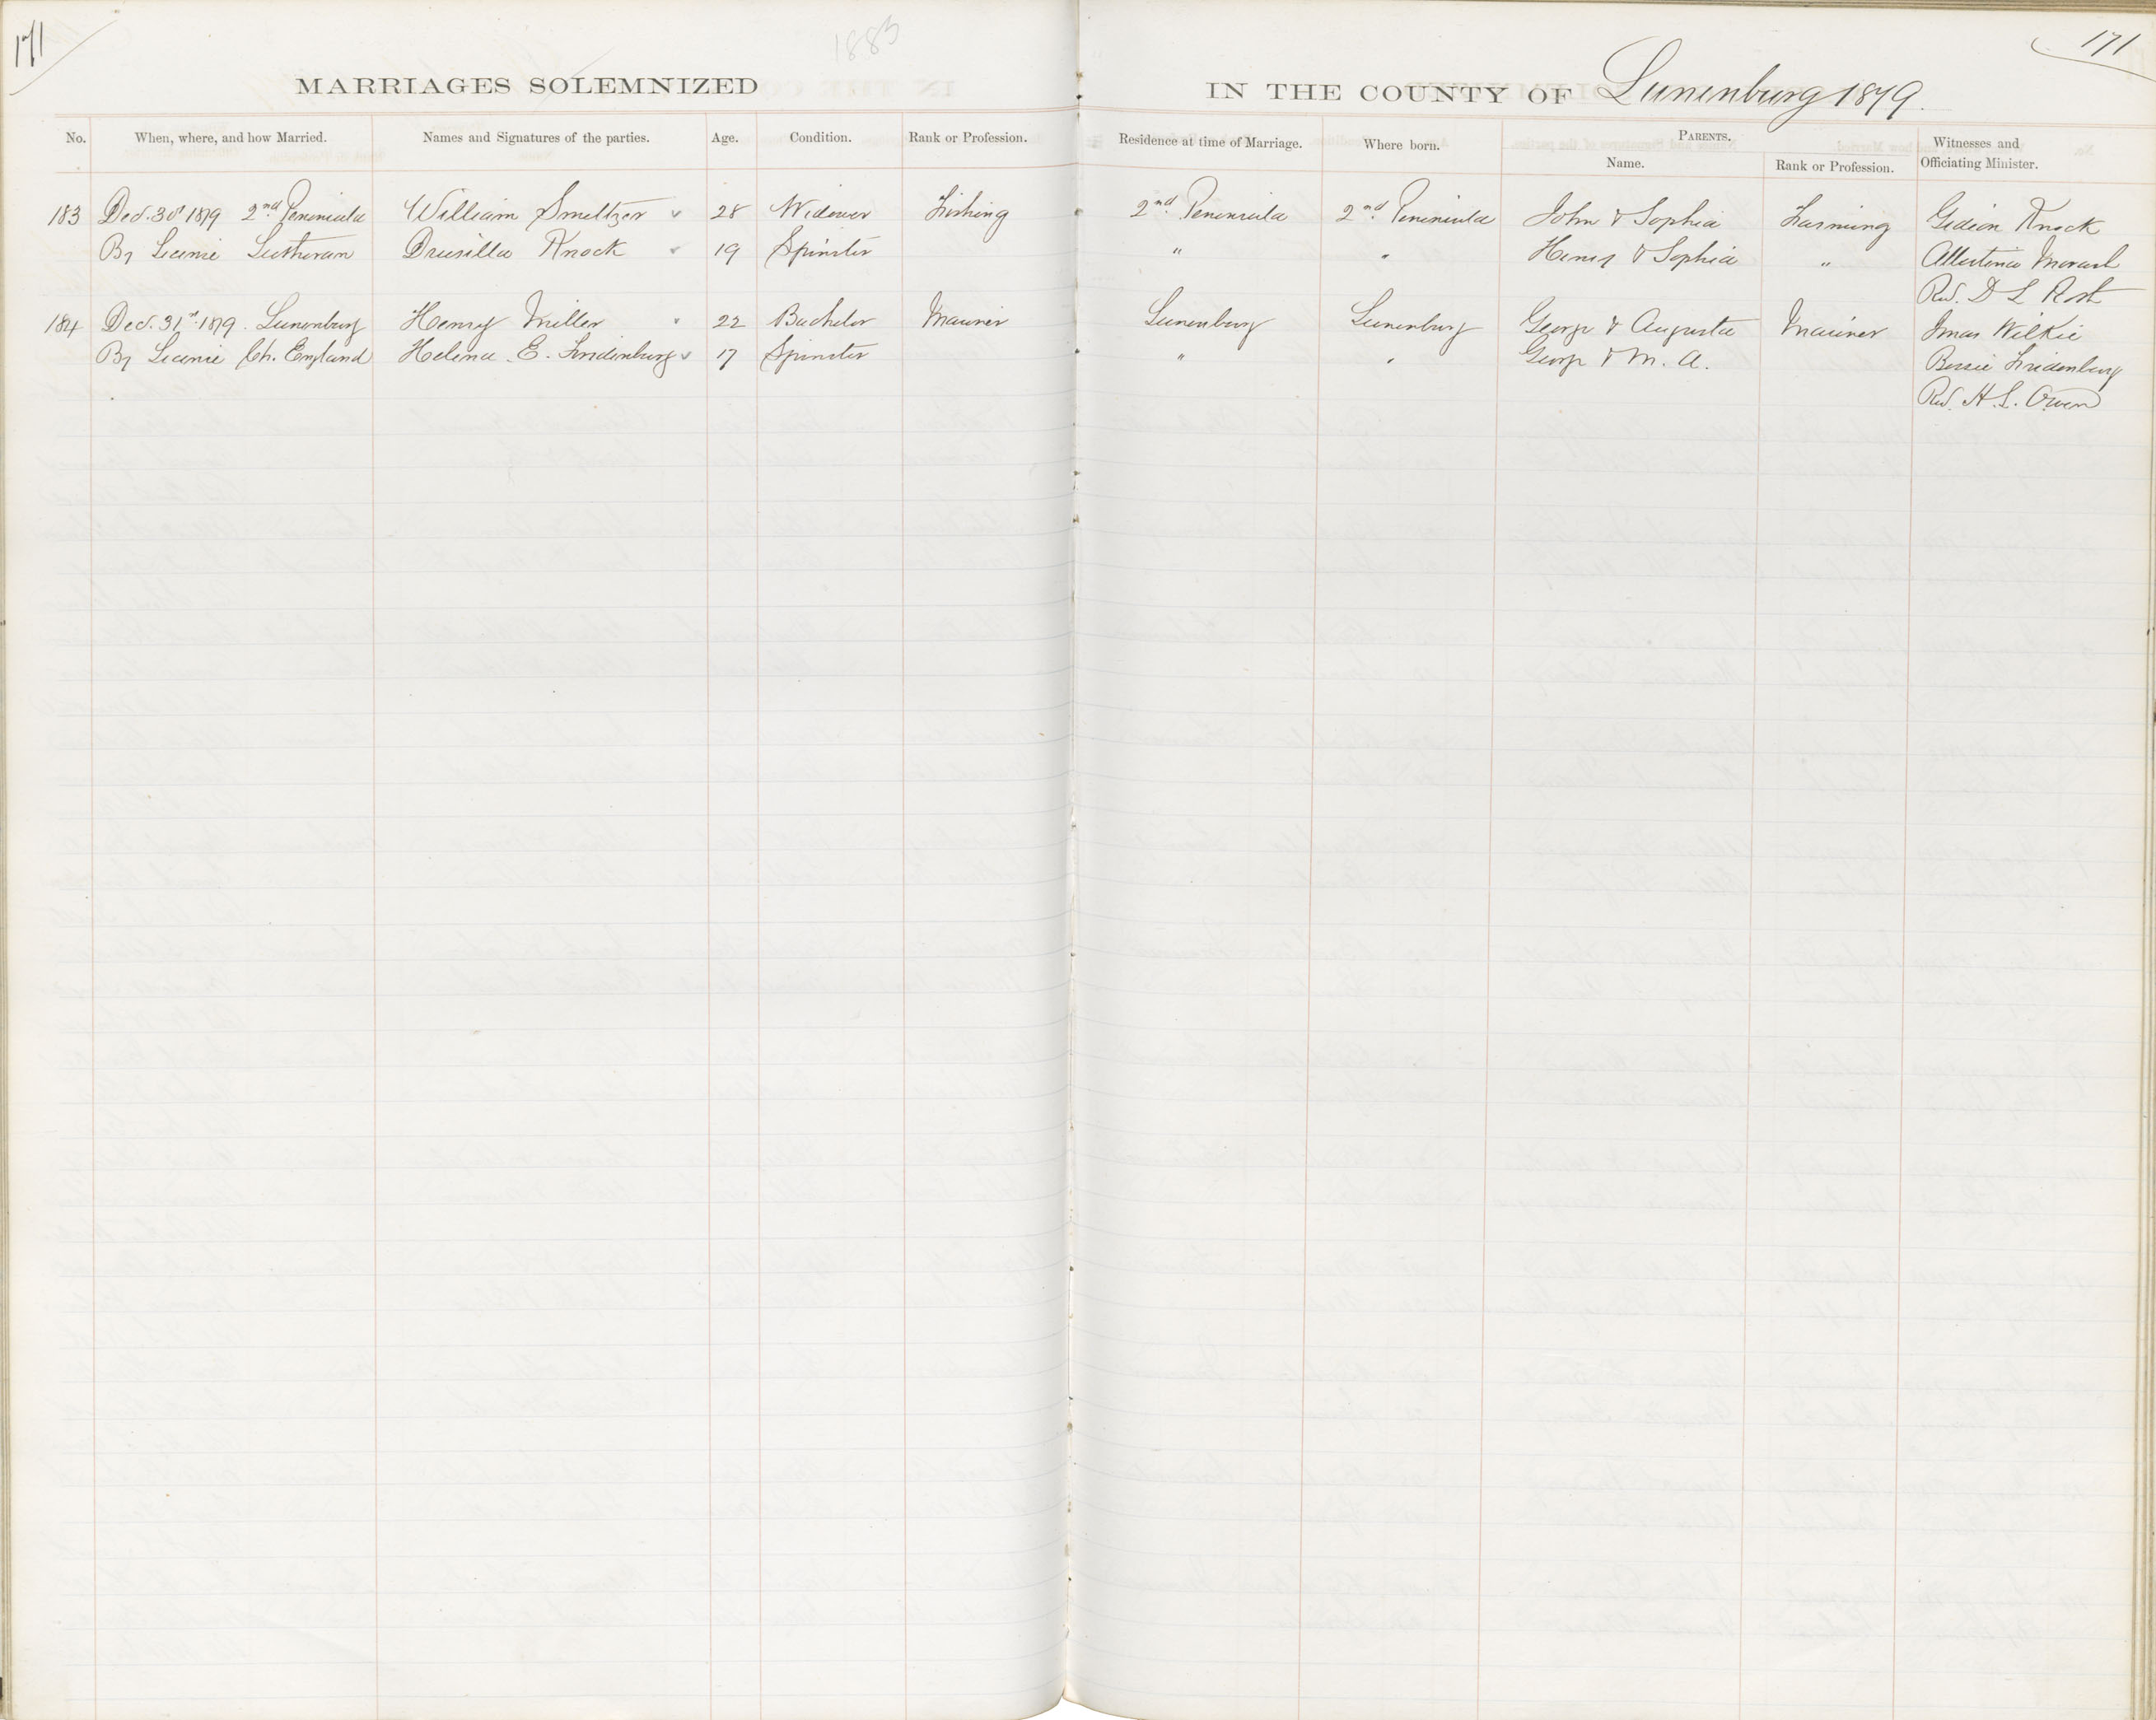 171
1883
171
MARRIAGES SOLEMNIZED IN THE COUNTY OF Lunenburg 1879.
No. When, where, and how Married. Names and Signatures of the parties. Age. Condition. Rank or Profession. Residence at time of Marriage. Where born. PARENTS. Name. Rank or Profession. Witnesses and Officiating Minister.
183 Dec. 30th 1879 2nd Peninsula William Smeltzer 28 Widower Fishing 2nd Peninsula 2nd Peninsula John & Sophia Farming Gideon Knock
By License Lutheran Drusilla Knock 19 Spinster " " Henry & Sophia " Albertina Morash
Rev. D L Roth
184 Dec. 31st 1879. Lunenburg Henry Miller 22 Bachelor Mariner Lunenburg Lunenburg George & Augusta Mariner Wilkie
By License Ch. England Helena E. Fridenburg 17 Spinster " " George & M. A. Bessie Fridenburg
Rev. H. L. Owen